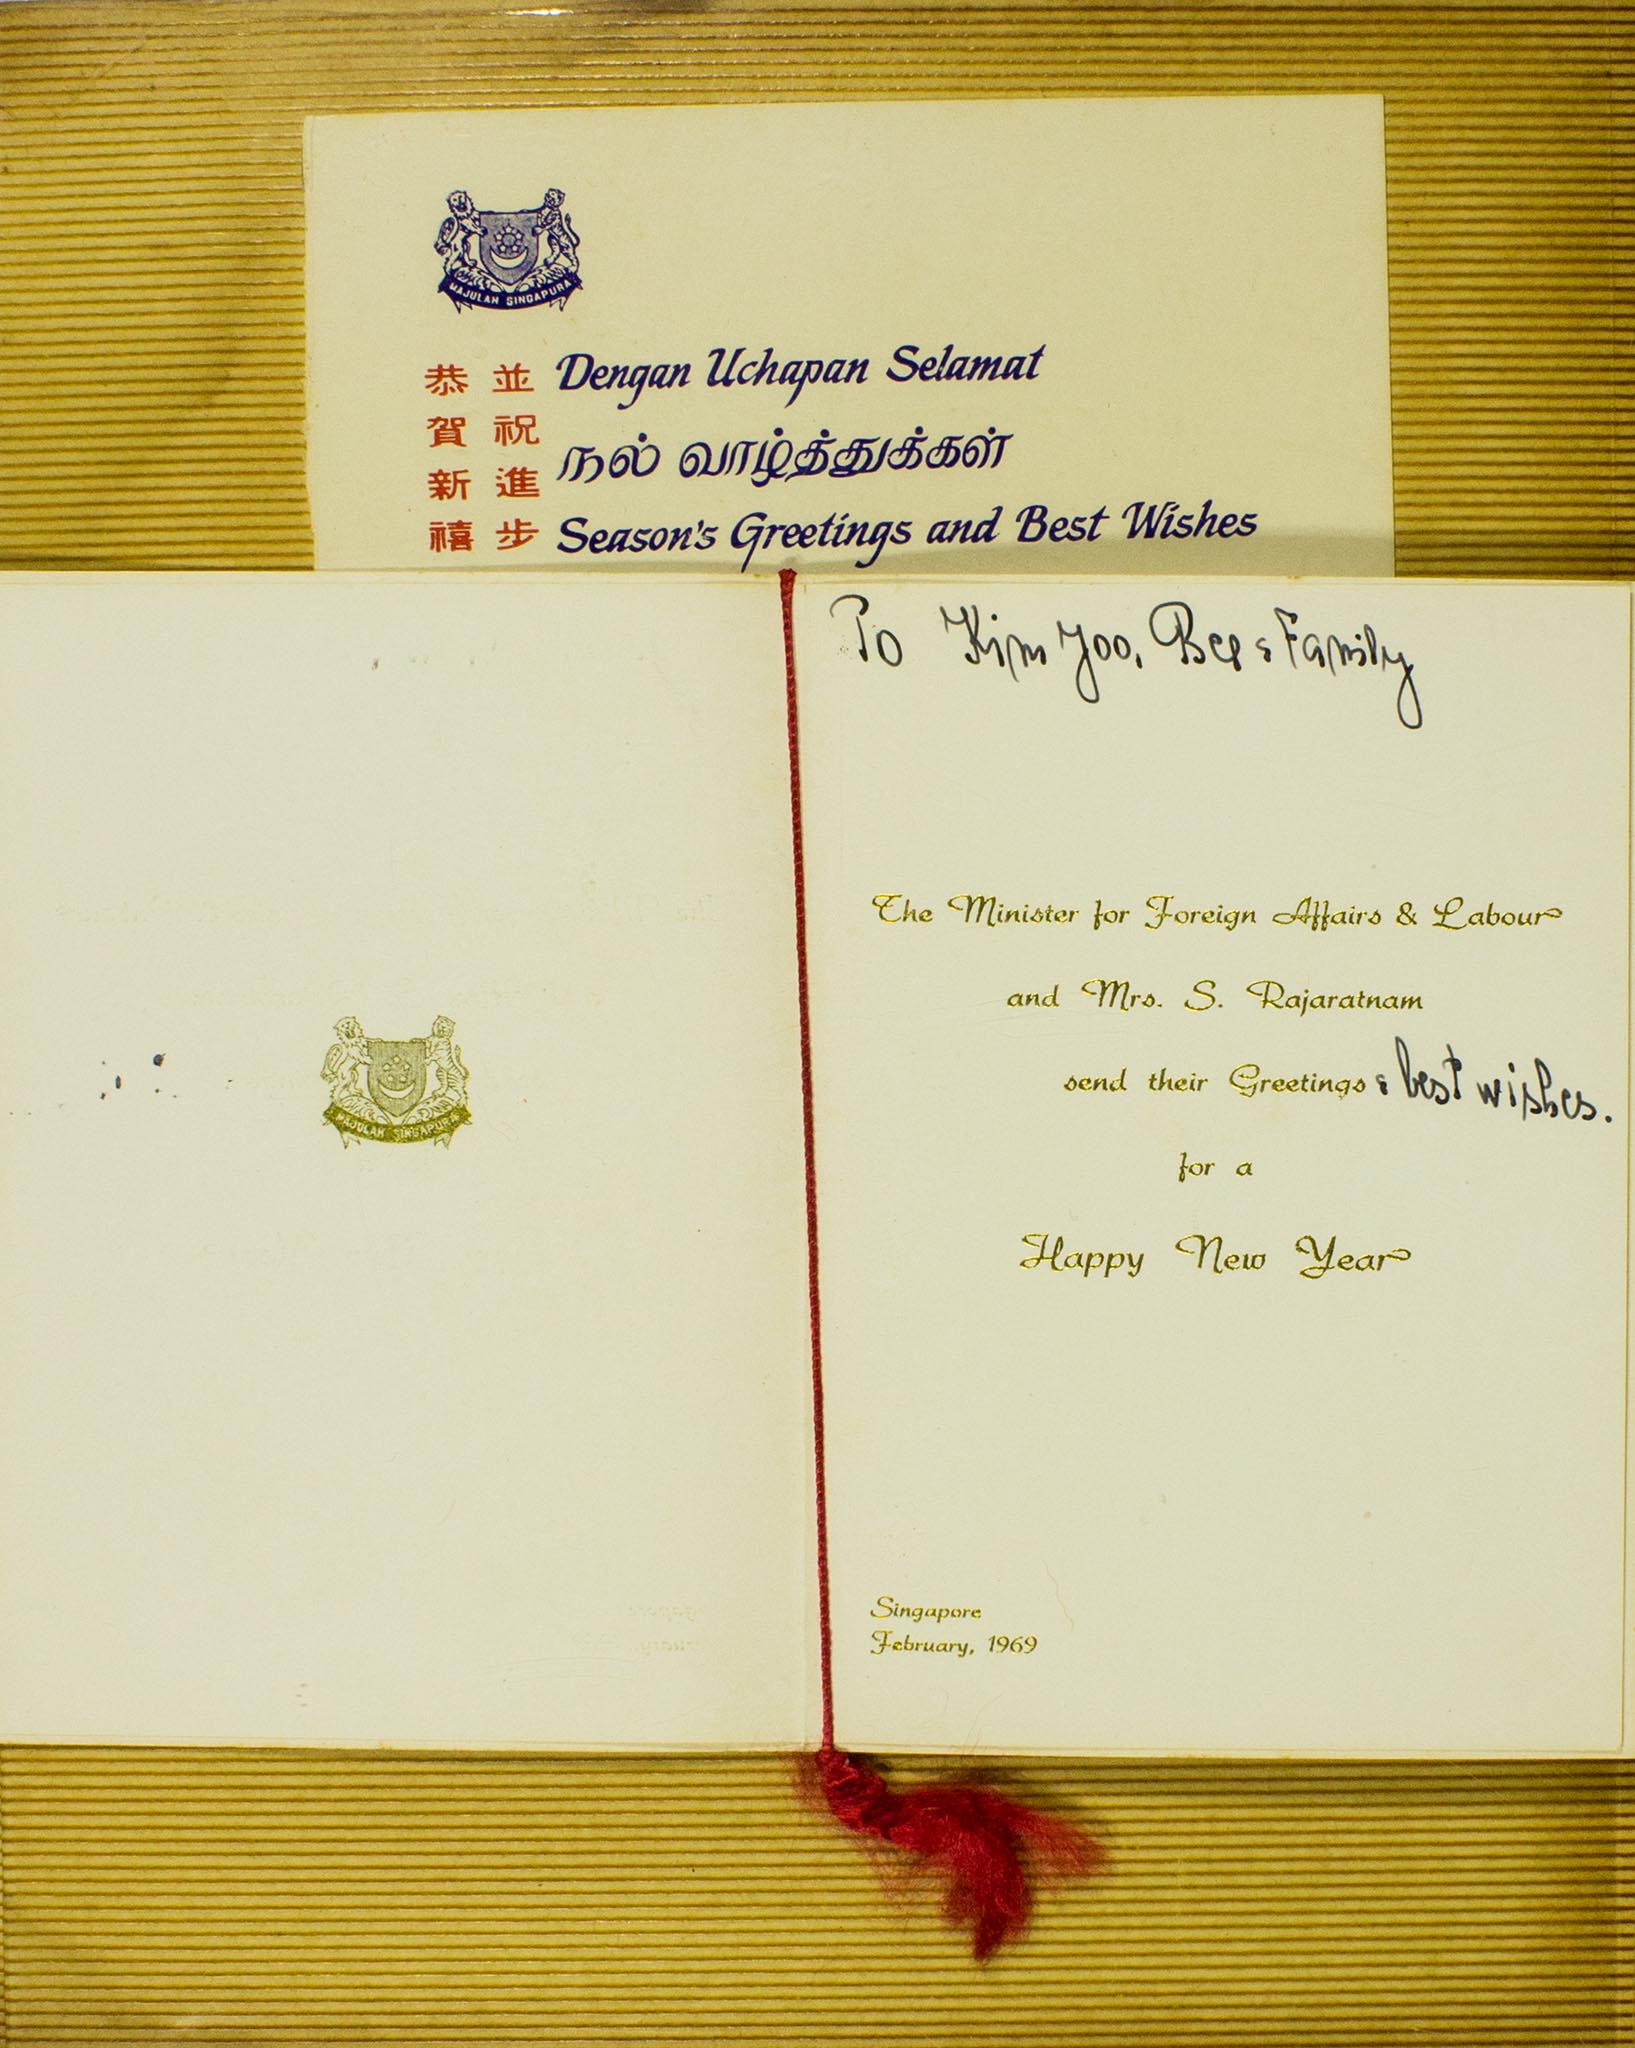 MAJULAH SINGAPURA
恭賀新禧
並祝進步
Dengan Uchapan Selamat
நல் வாழ்த்துக்கள்
Season's Greetings and Best Wishes
MAJULAH SINGAPURA
To Kim Yoo, Bee & Family
The Minister for Foreign Affairs & Labour
and Mrs. S. Rajaratnam
send their Greetings & best wishes.
for a
Happy New Year
Singapore
February, 1969